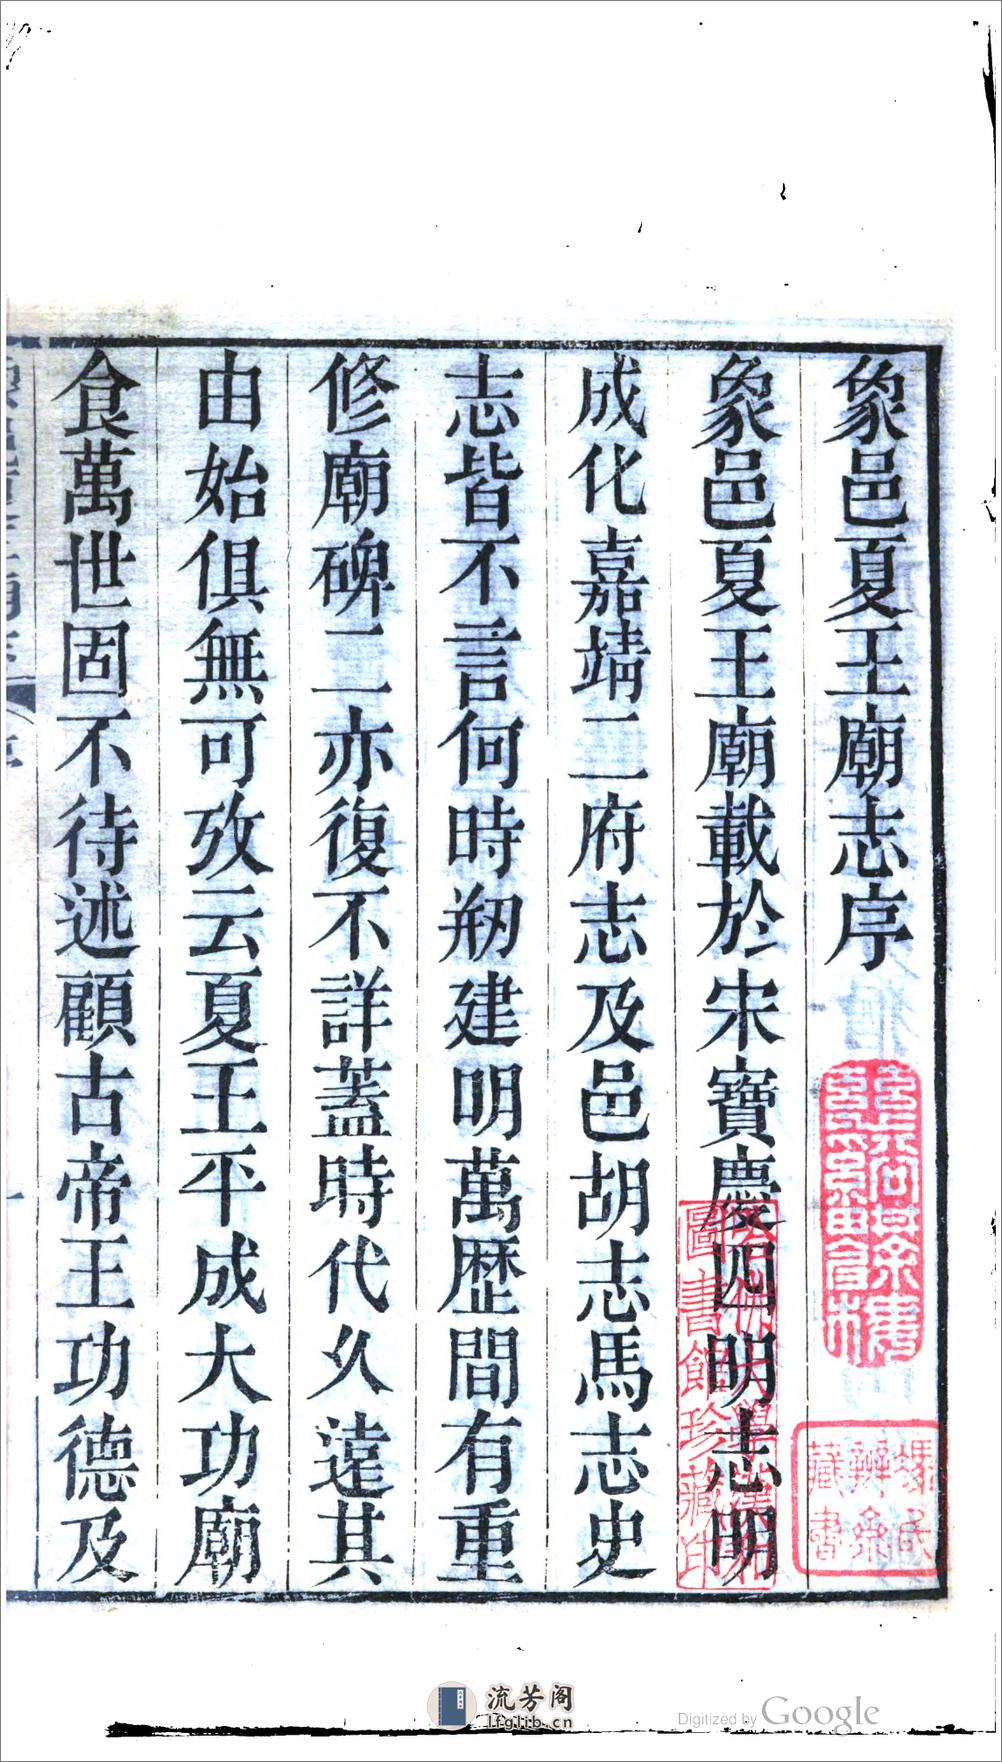 象邑夏王廟志序
象邑夏王廟載於宋寶慶四明志明
成化嘉靖二府志及邑胡志馬志史
志皆不言何時剏建明萬歴間有重
修廟碑二亦復不詳蓋時代久遠其
由始俱無可攷云夏王平成大功廟
食萬世固不待述顧古帝王功德及
圖書館珍藏印
藏書
流芳阁
lfglib.cn
Digitized by Google